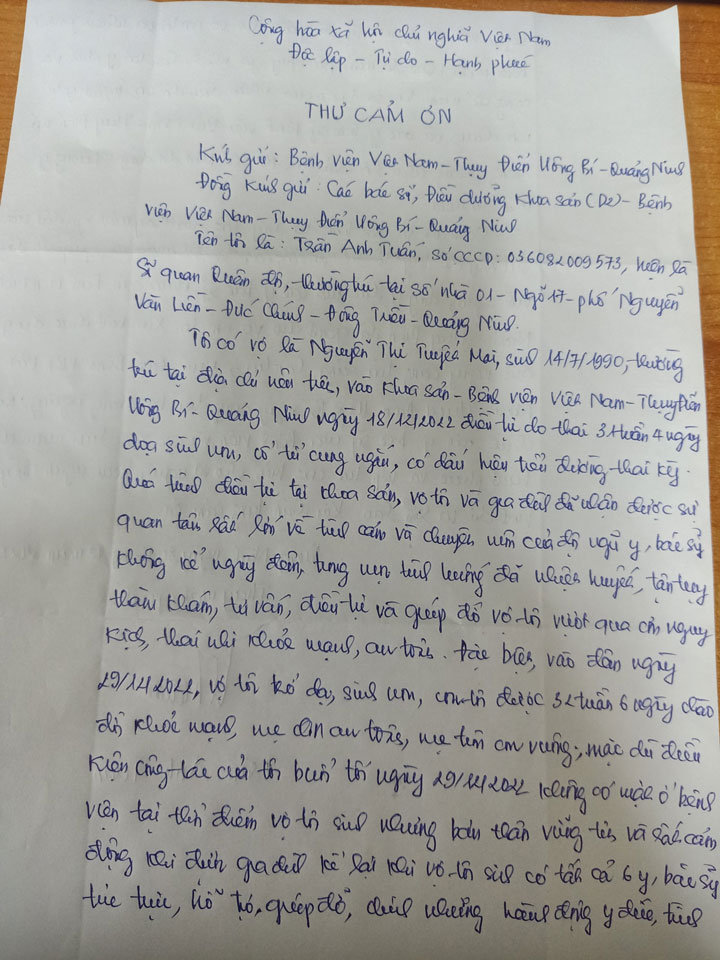 Cộng hòa xã hội chủ nghĩa Việt Nam
Độc lập - Tự do - Hạnh phúc
THƯ CẢM ƠN
Kính gửi: Bệnh viện Việt Nam - Thụy Điển Uông Bí - Quảng Ninh
Đồng kính gửi: Các bác sĩ, Điều dưỡng khoa sản (D2) - Bệnh
viện Việt Nam - Thụy Điển Uông Bí - Quảng Ninh
Tên tôi là: Trần Anh Tuấn, số CCCD: 036082009573, hiện là
Sĩ quan Quân đội, thường trú tại số nhà 01 - Ngõ 17 - phố Nguyễn
Văn Liền - Đức Chính - Đông Triều - Quảng Ninh.
Tôi có vợ là Nguyễn Thị Tuyết Mai, sinh 14/7/1990, thường
trú tại địa chỉ nêu trên, vào khoa sản - Bệnh viện Việt Nam - Thụy Điển
Uông Bí - Quảng Ninh ngày 18/12/2022 điều trị do thai 31 tuần 4 ngày
dọa sinh non, cổ tử cung ngắn, có dấu hiệu tiểu đường thai kỳ.
Quá trình điều trị tại khoa sản, vợ tôi và gia đình đã nhận được sự
quan tâm rất lớn về tình cảm và chuyên môn của đội ngũ y, bác sỹ
không kể ngày đêm, trong mọi tình huống đã nhiệt huyết, tận tụy
thăm khám, tư vấn, điều trị và giúp đỡ vợ tôi vượt qua cơn nguy
kịch, thai nhi khỏe mạnh, an toàn. Đặc biệt, vào đêm ngày
29/12/2022, vợ tôi trở dạ, sinh non, con tôi được 32 tuần 6 ngày chào
đời khỏe mạnh, mẹ con an toàn, mẹ tròn con vuông, mặc dù điều
kiện công tác của tôi buổi tối ngày 29/12/2022 không có mặt ở bệnh
viện tại thời điểm vợ tôi sinh nhưng bản thân vững tin và rất cảm
động khi được gia đình kể lại khi vợ tôi sinh có tất cả 6 y, bác sỹ
túc trực, hỗ trợ, giúp đỡ, chính những hành động y đức, tình